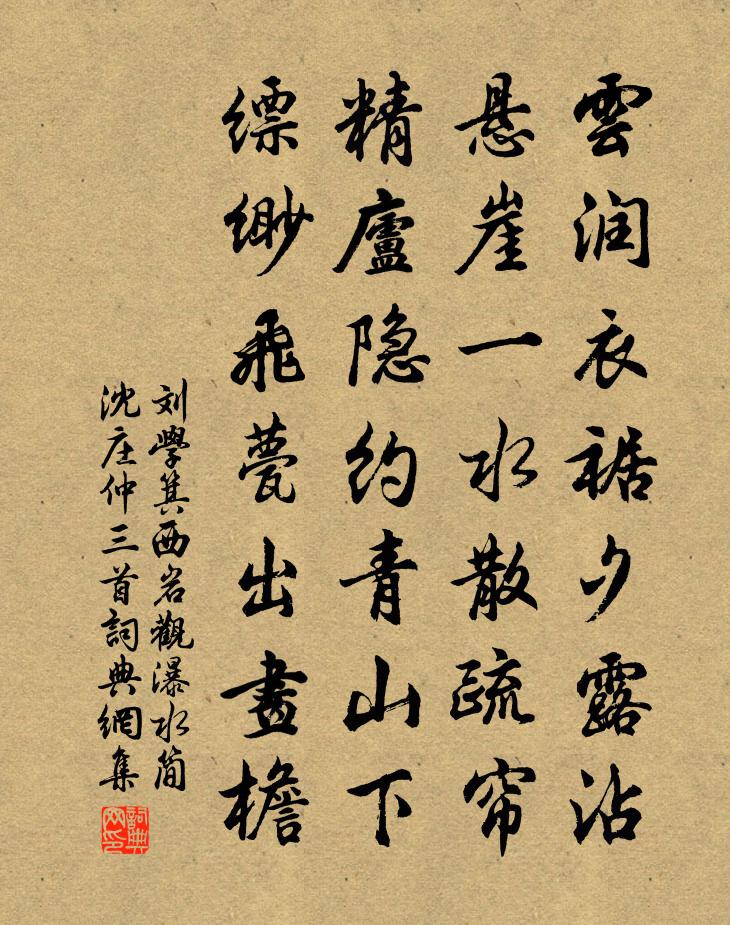 雲润衣裾夕露沾
悬崖一水散疏帘
精廬隐约青山下
缥缈飛甍出畫檐
刘學箕西岩觀瀑水简
沈庄仲三首詞典網集
詞典网印